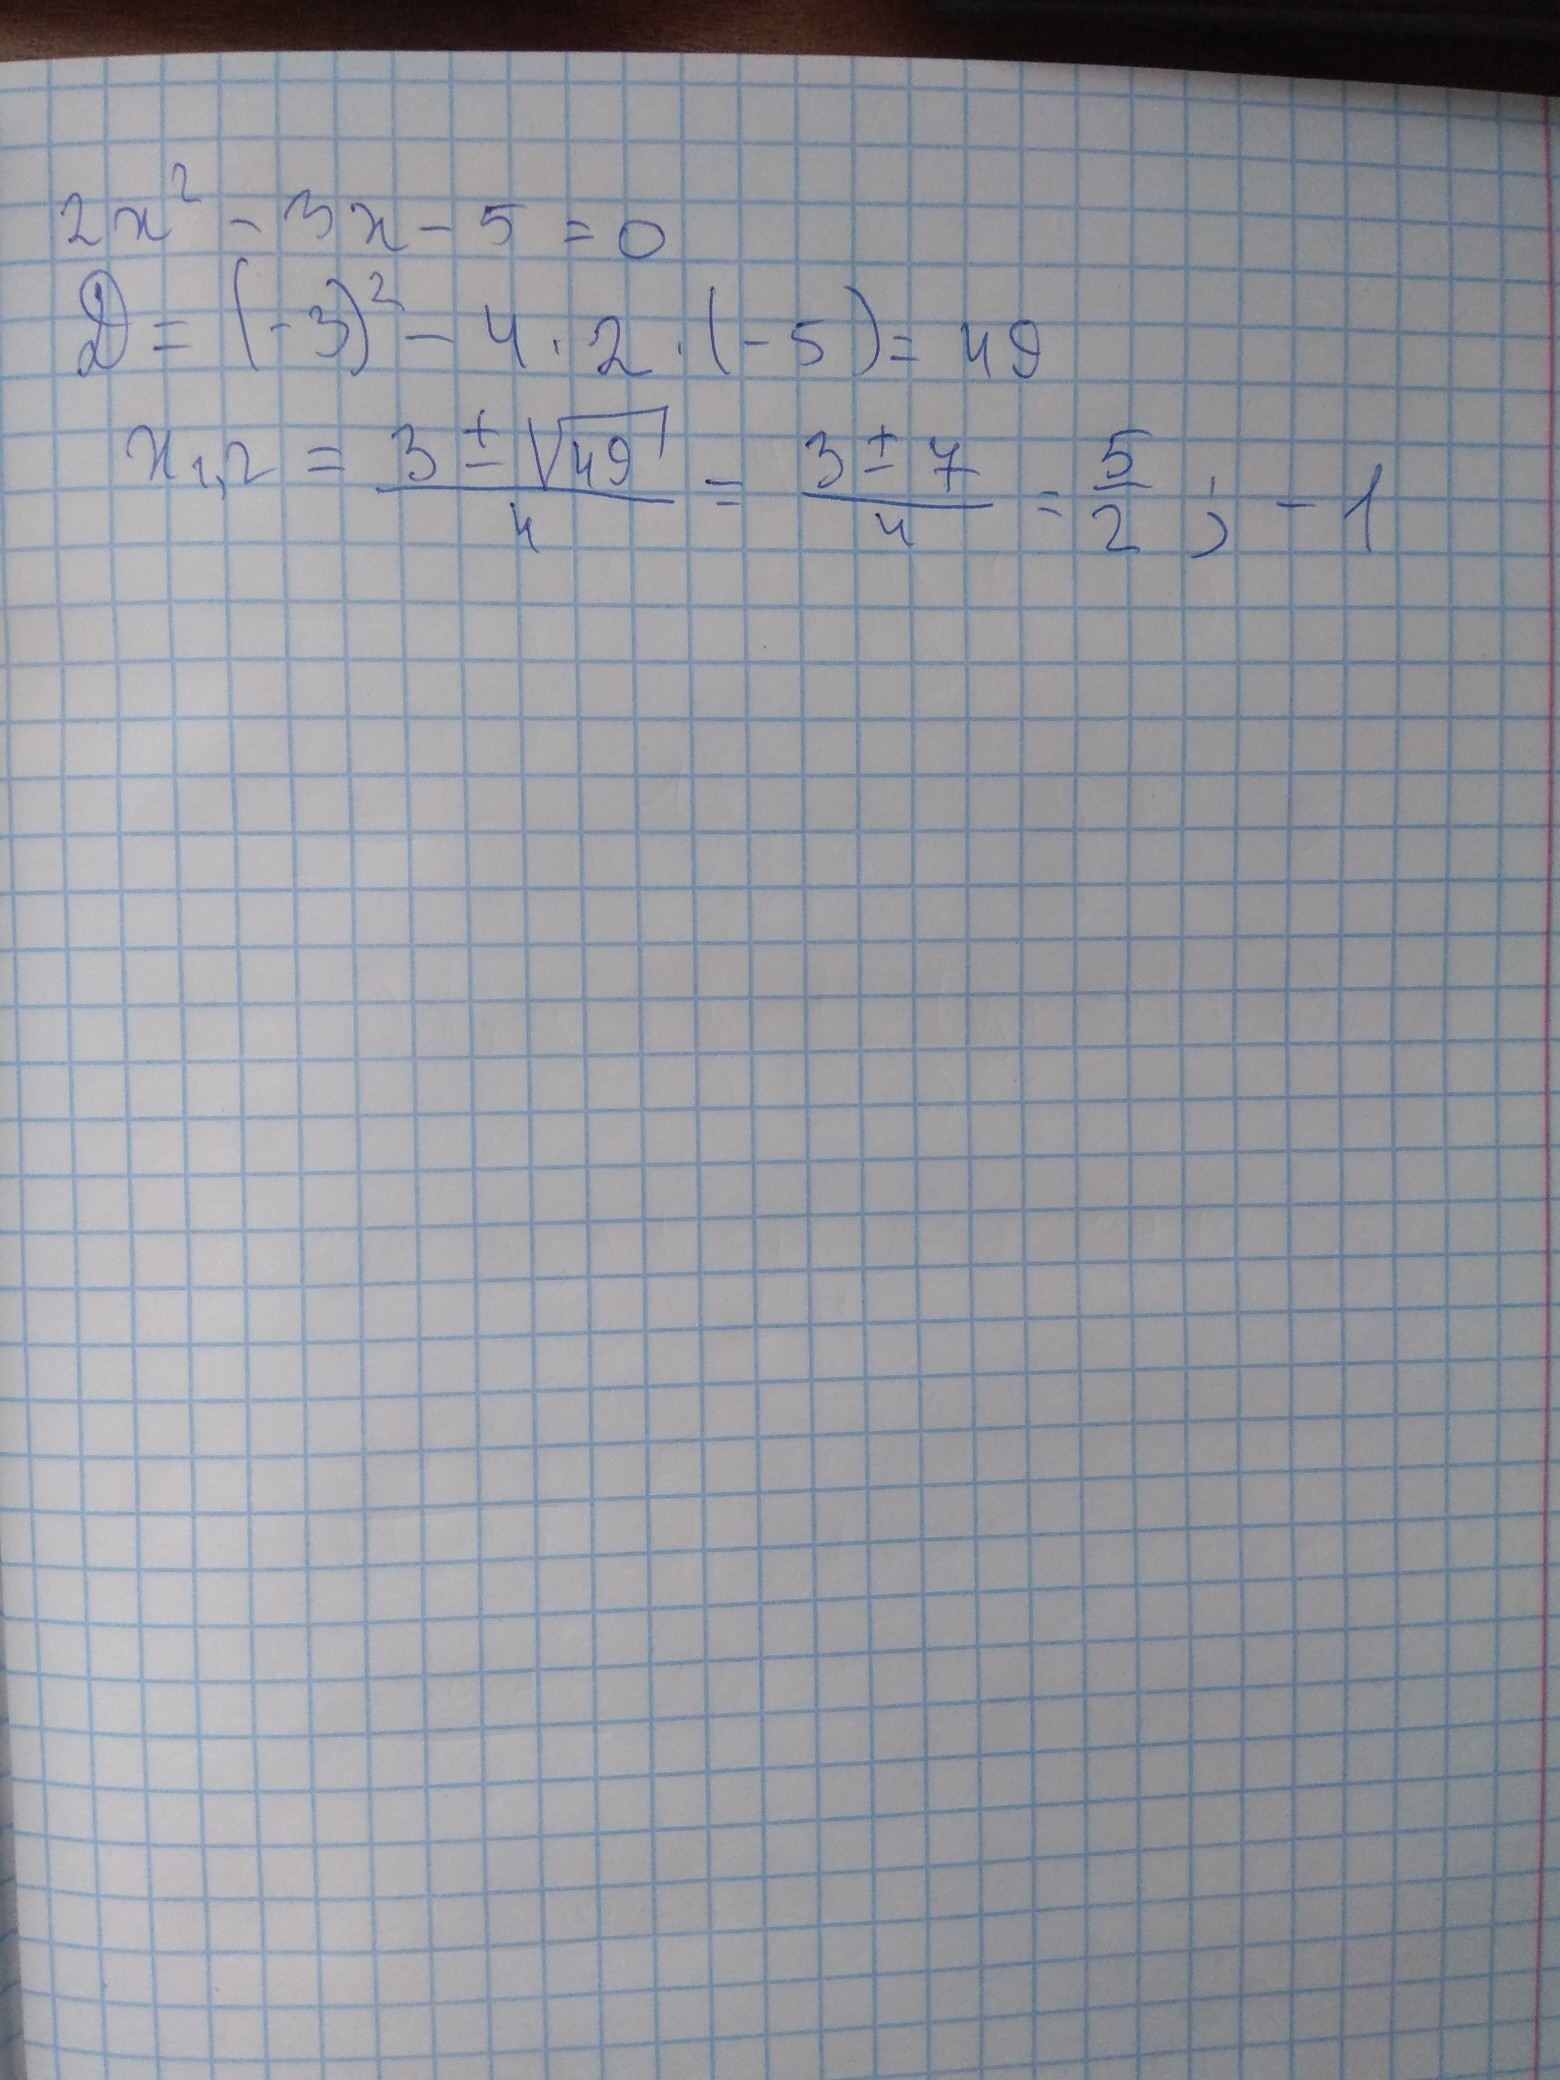 2x² - 3x - 5 = 0
D = (-3)² - 4 · 2 · (-5) = 49
x₁,₂ = (3 ± √49)/4 = (3 ± 7)/4 = 5/2 ; -1